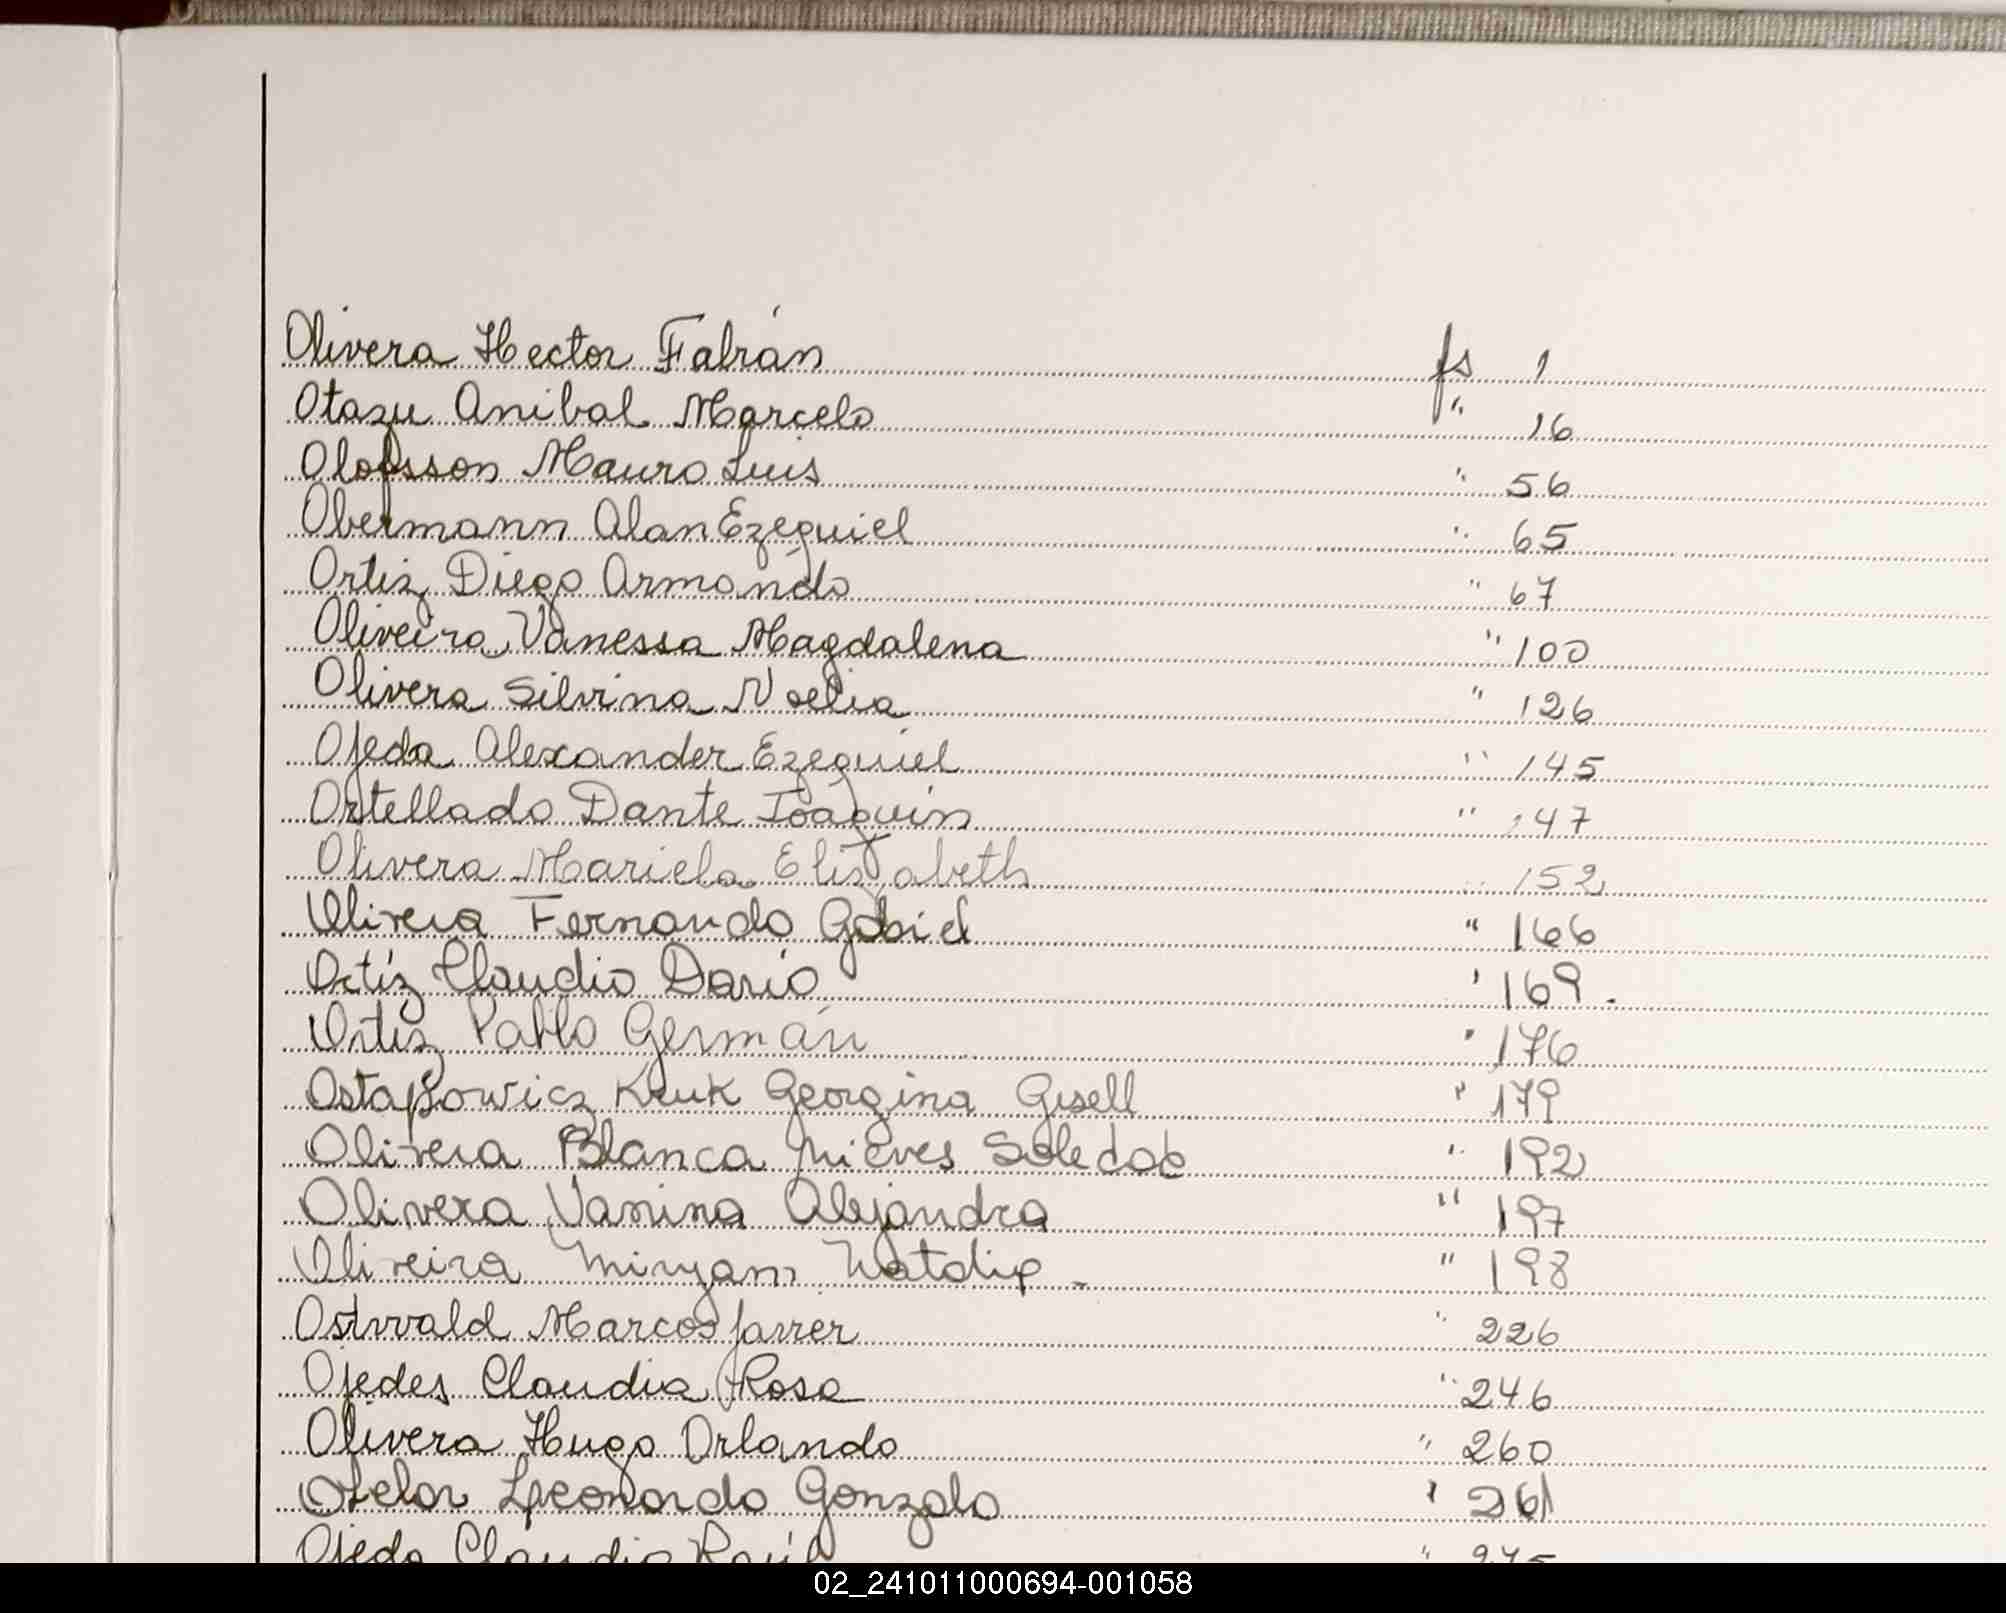 Olivera Hector Fabián fs 1
Otazu Anibal Marcelo " 16
Olofsson Mauro Luis " 56
Obermann Alan Ezequiel " 65
Ortiz Diego Armando " 67
Oliveira Vanessa Magdalena " 100
Olivera Silvina Noelia " 126
Ojeda Alexander Ezequiel " 145
Ortellado Dante Joaquín " 147
Olivera Mariela Elizabeth " 152
Olivera Fernando Gabriel " 166
Ortíz Claudio Dario " 169.
Ortiz Pablo Germán " 176
Ostapowicz Kruk Georgina Gisell " 179
Olivera Blanca Nieves Soledad " 192
Olivera Vanina Alejandra " 197
Oliveira Miryam Natalia - " 198
Ostwald Marcos Javier " 226
Ojedes Claudia Rosa " 246
Olivera Hugo Orlando " 260
Leonardo Gonzalo " 261
Ojeda Claudio Raúl " 275
02_241011000694-001058